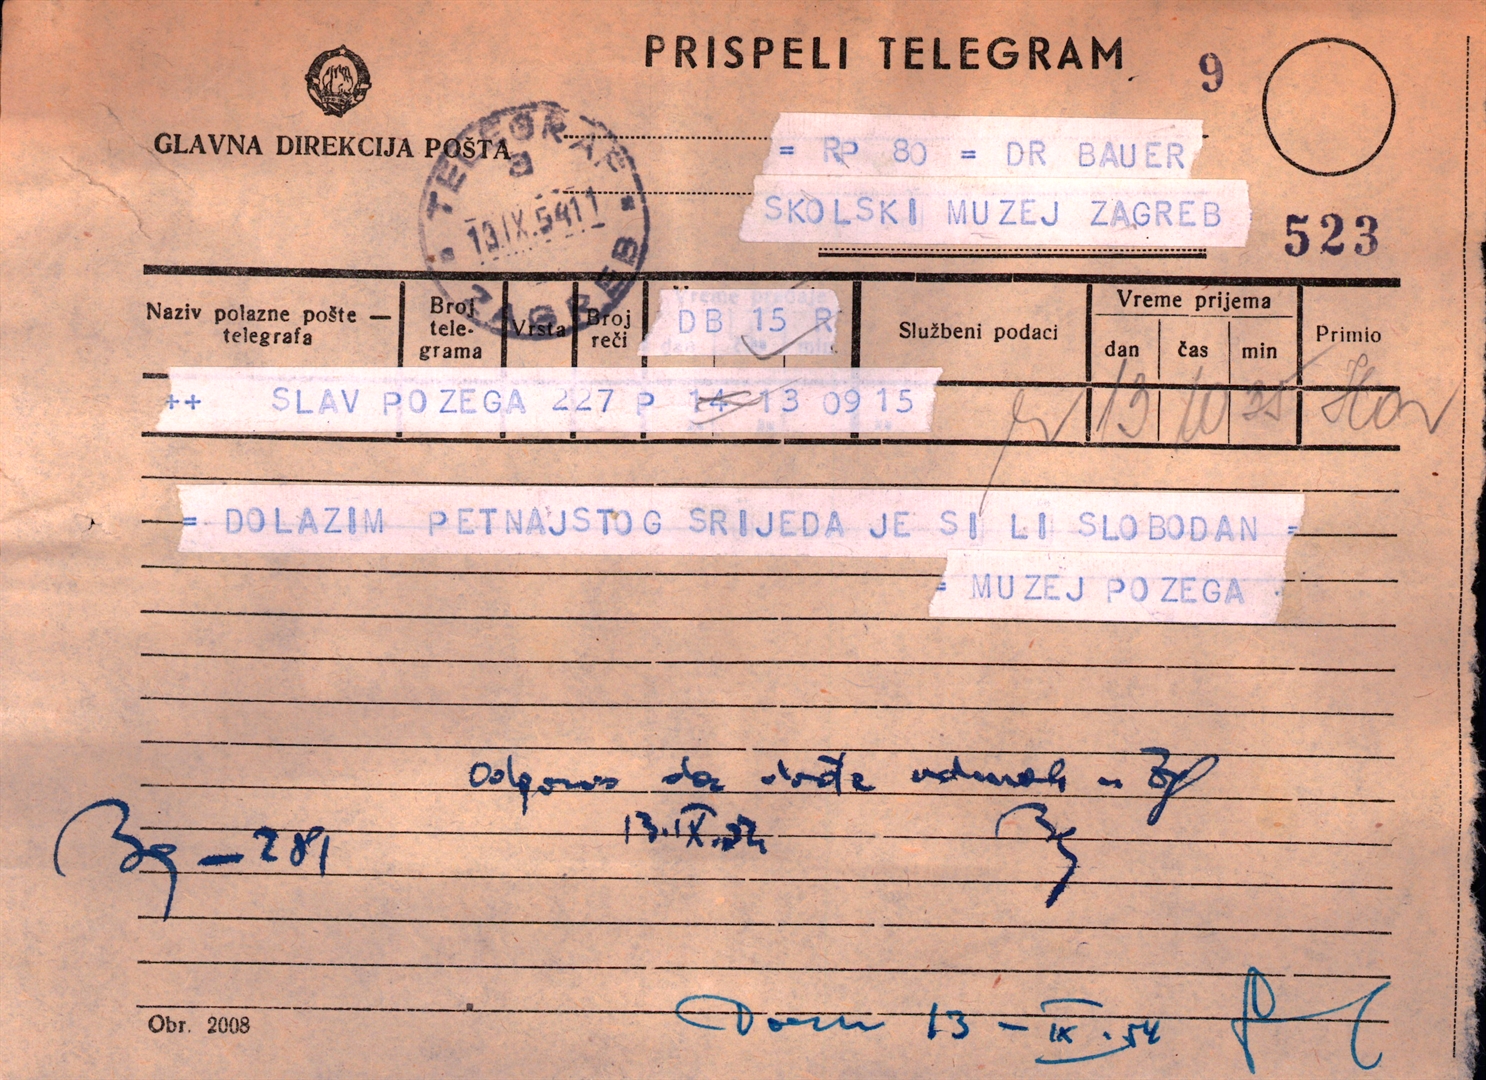 PRISPELI TELEGRAM
9
GLAVNA DIREKCIJA POŠTA
TELEGRAF
9
13 IX. 54 11
ZAGREB
= RP 80 = DR BAUER
SKOLSKI MUZEJ ZAGREB
523
Naziv polazne pošte — telegrafa
Broj tele-grama
Vrsta
Broj reči
Vreme predaje
dan čas min.
DB 15 R
Službeni podaci
Vreme prijema
dan čas min
Primio
++ SLAV POZEGA 227 P 14 13 09 15
13 10 35
= DOLAZIM PETNAJSTOG SRIJEDA JE SI LI SLOBODAN =
= MUZEJ POZEGA
Odgovor da dođe odmah u Zg
13.IX.54
Bg
Bg — 281
Obr. 2008
13 — IX. 54